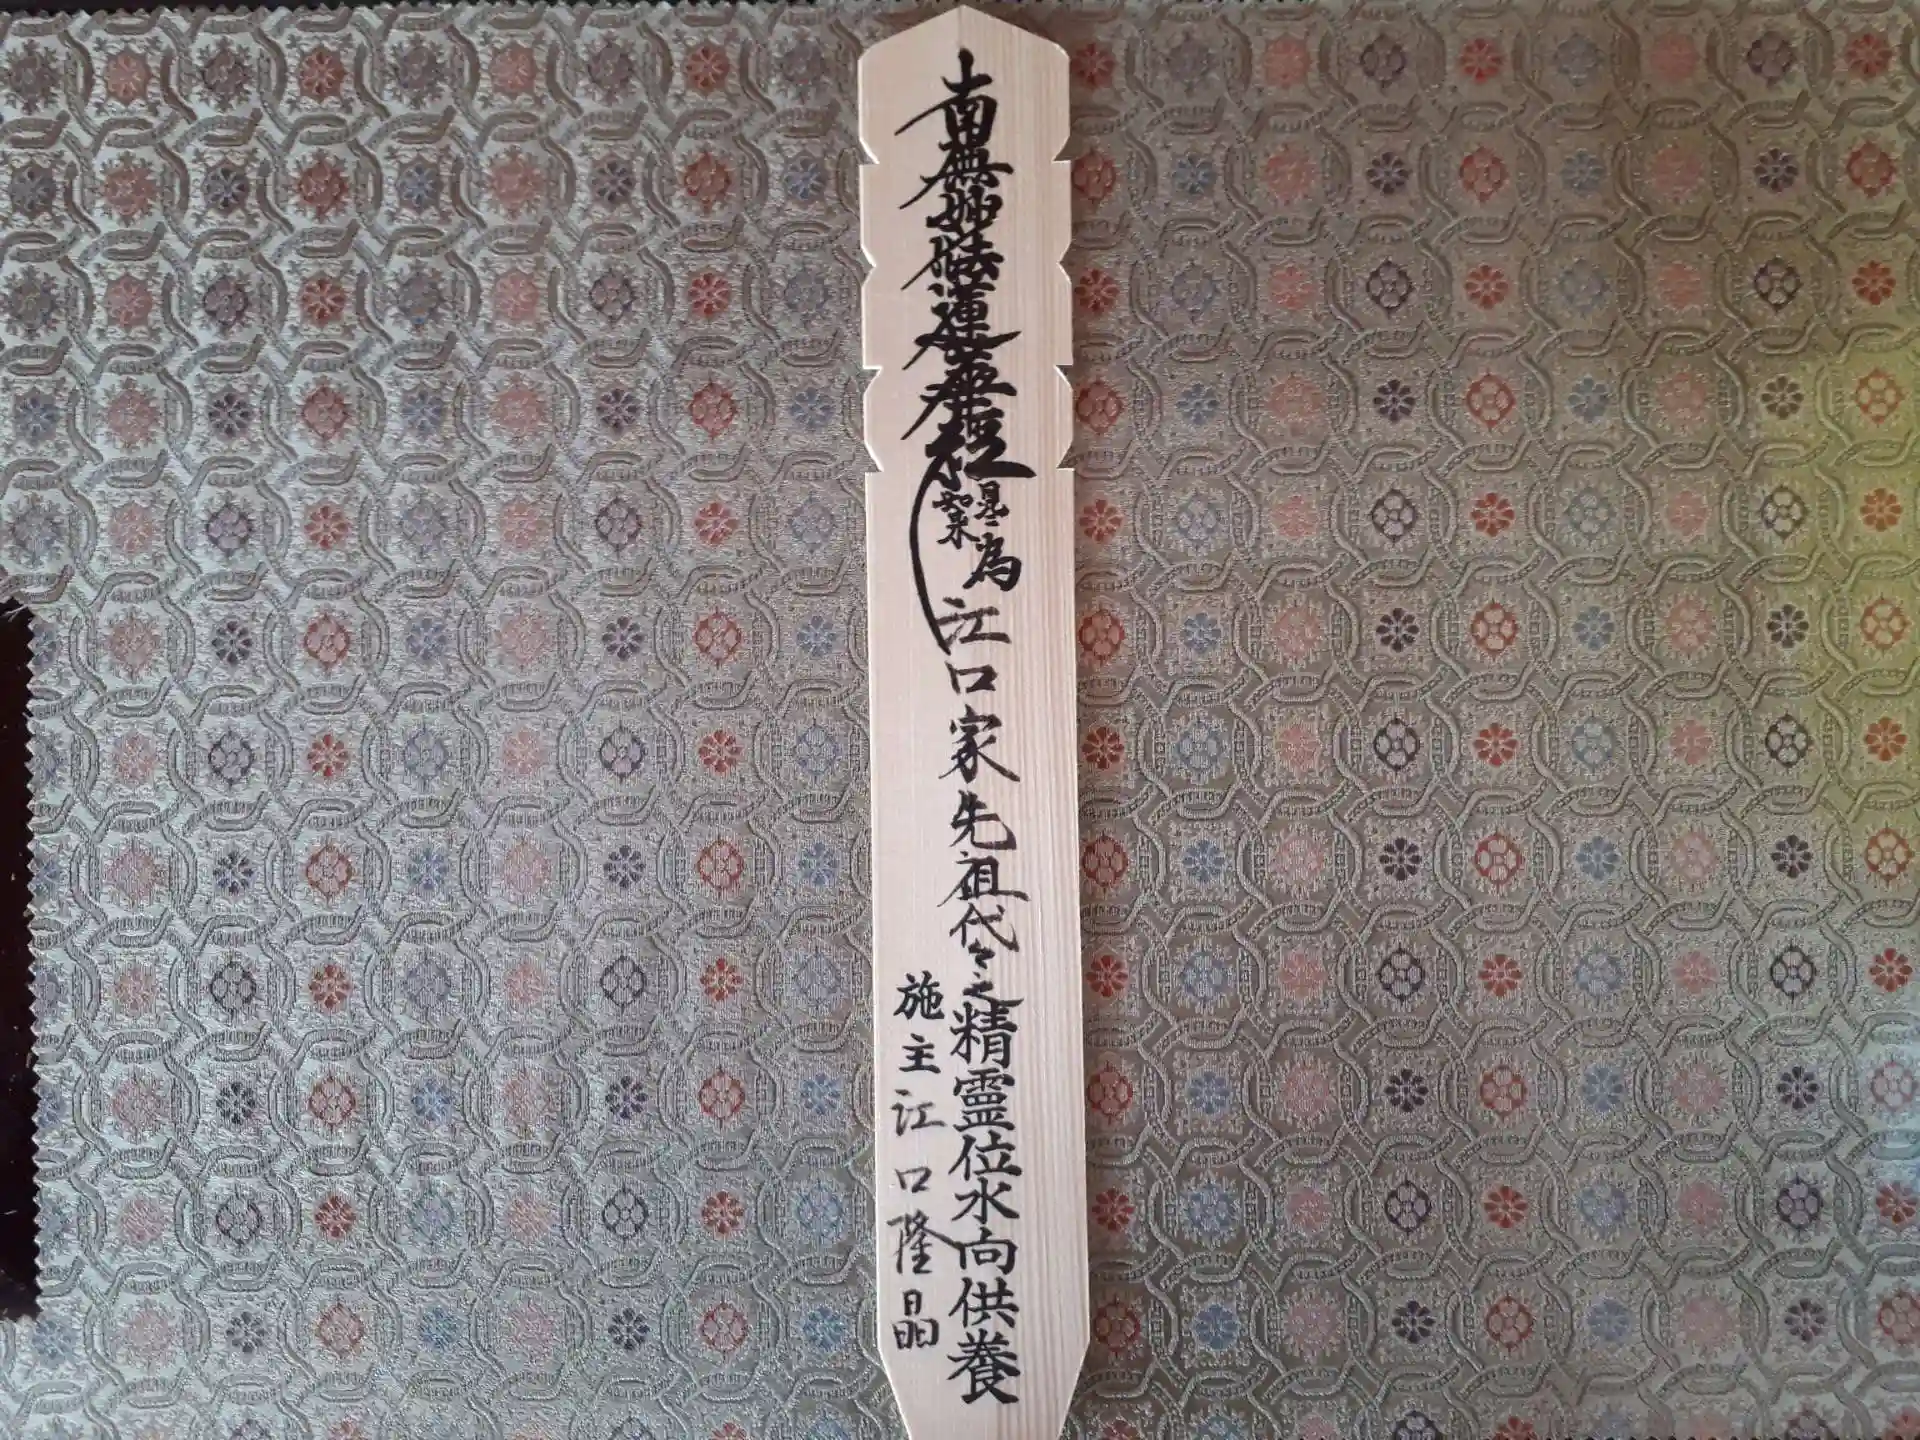 南無妙法蓮華経
為江口家先祖代々之精霊位水向供養
施主江口隆晶